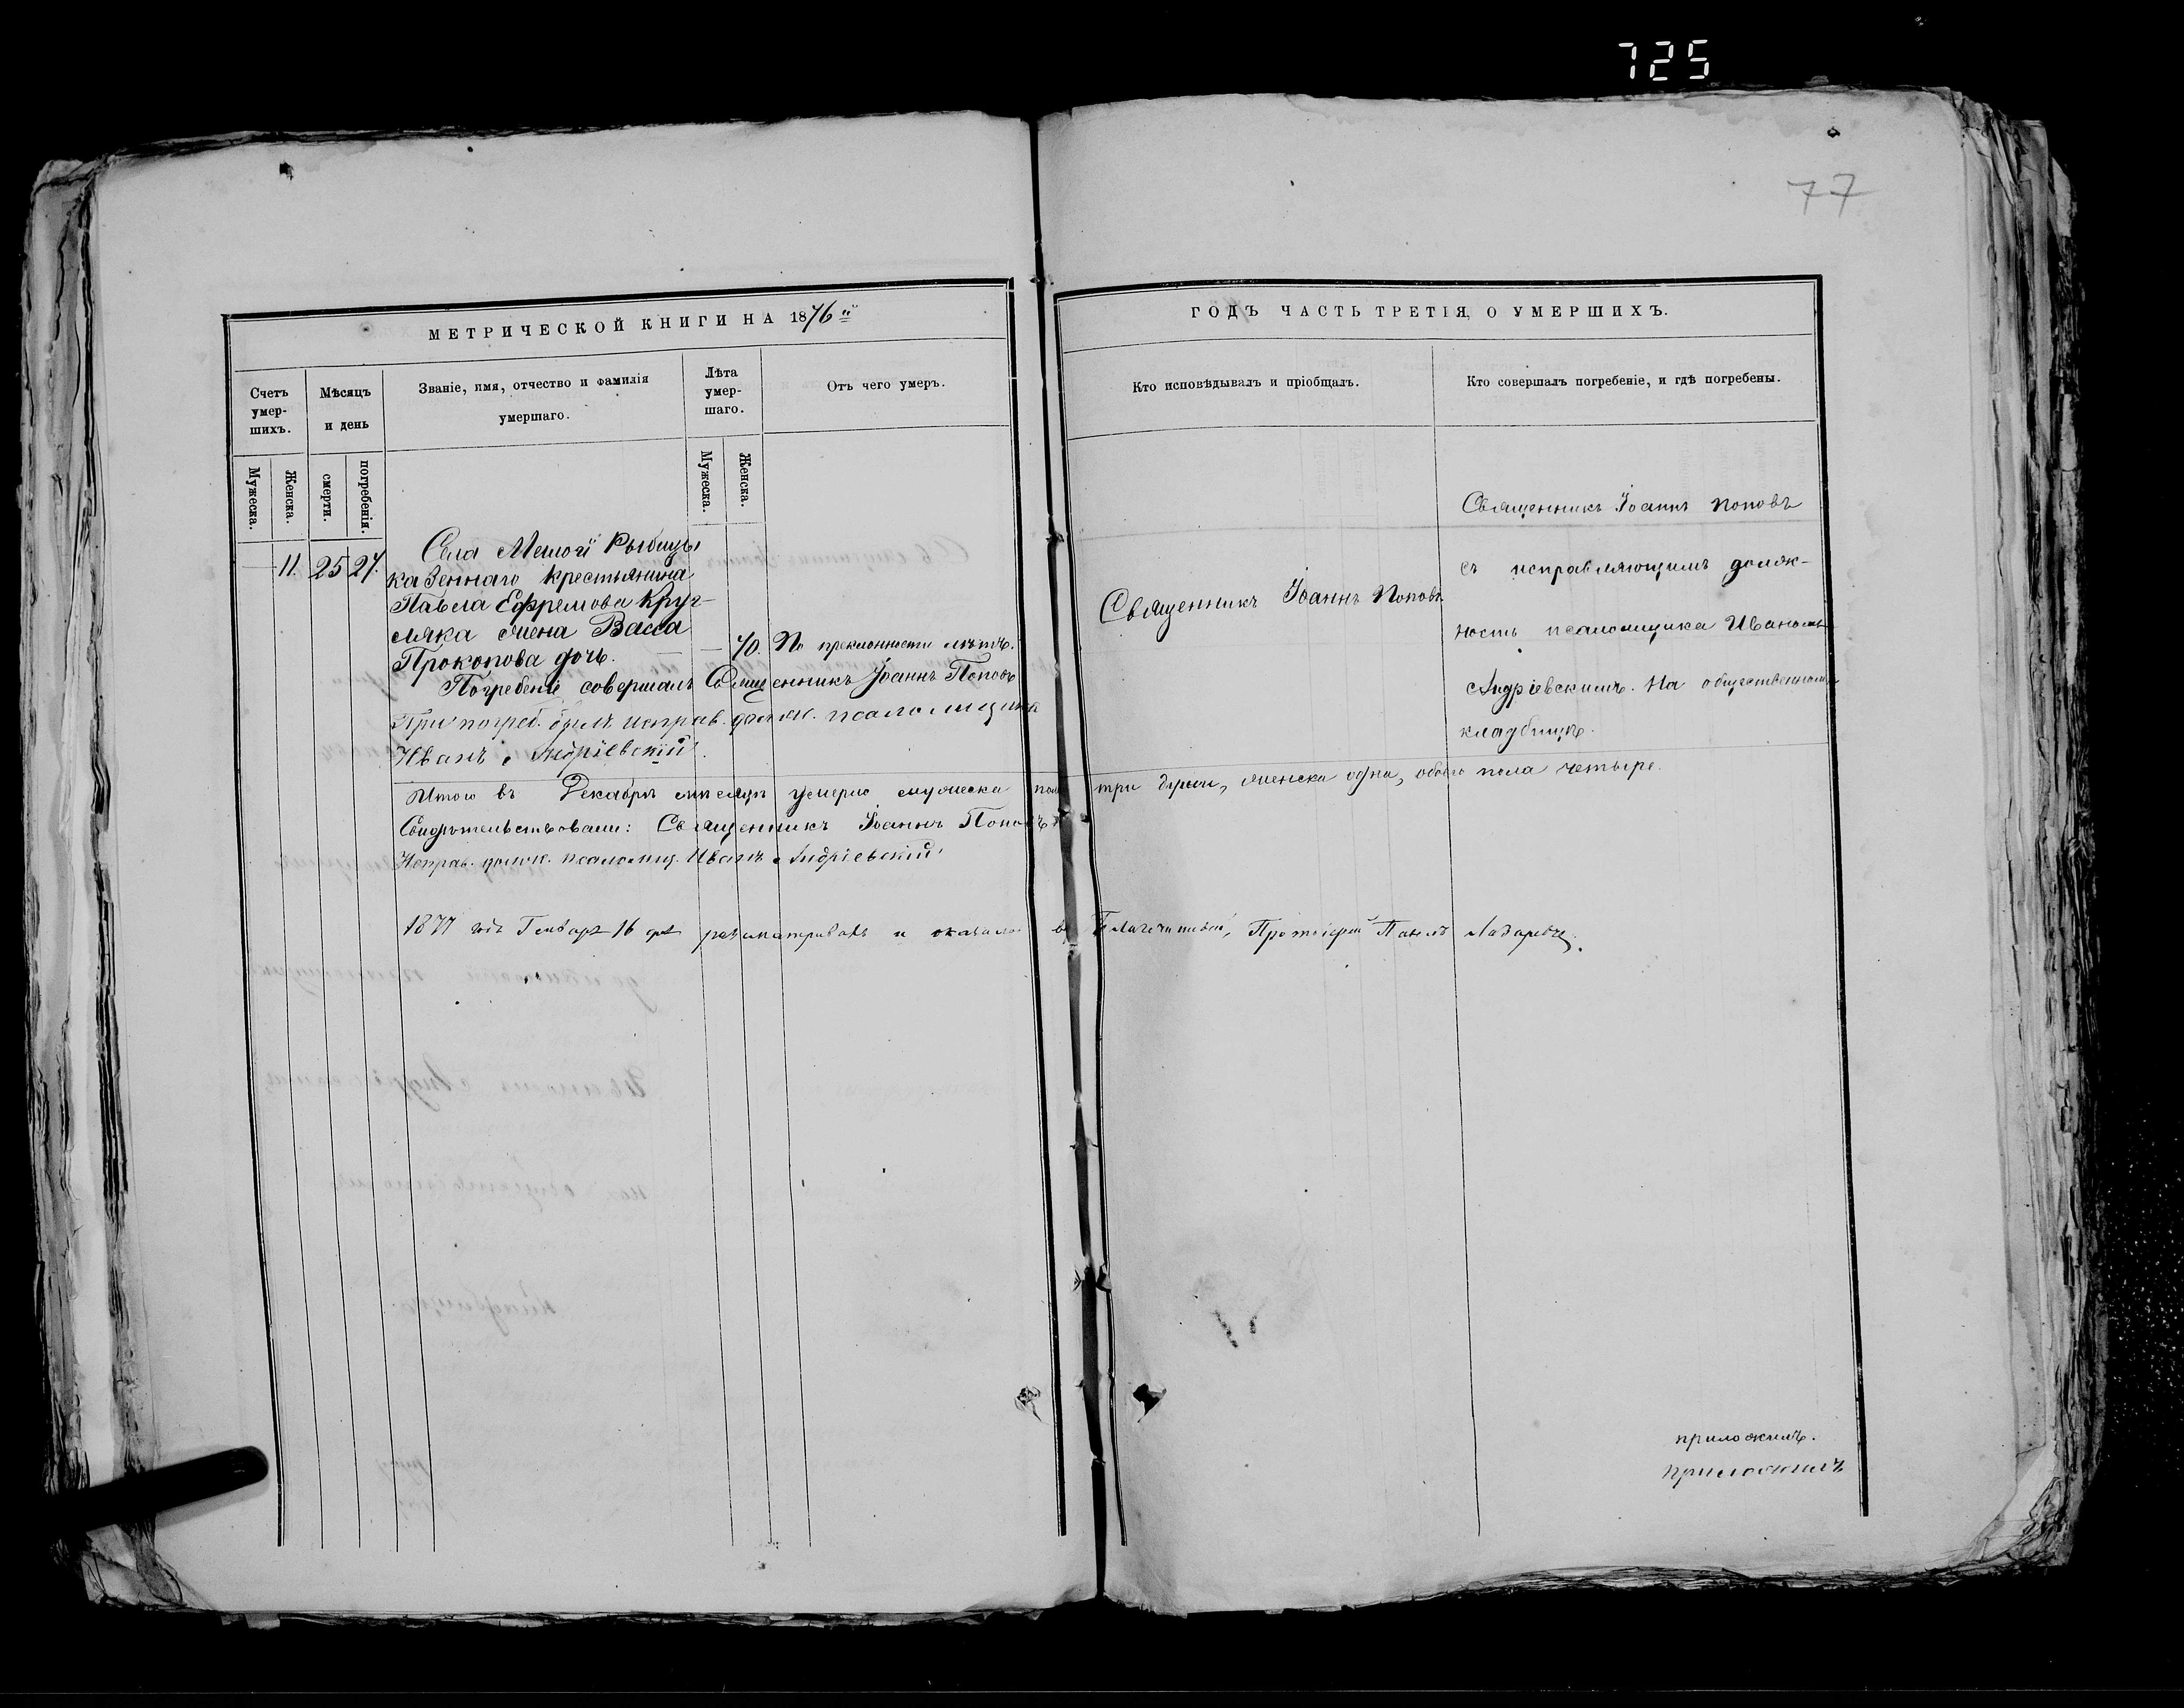 725
77
МЕТРИЧЕСКОЙ КНИГИ НА 1876й
ГОДЪ ЧАСТЬ ТРЕТІЯ, О УМЕРШИХЪ.
Счетъ умер-шихъ.
Мѣсяцъ и день
Званіе, имя, отчество и фамилія умершаго.
Лѣта умер-шаго.
Отъ чего умеръ.
Кто исповѣдывалъ и пріобщалъ.
Кто совершалъ погребеніе, и гдѣ погребены.
Мужеска.
Женска.
смерти.
погребенія.
Мужеска.
Женска.
11. 25 27.
Села Рыбицы
казеннаго крестьянина
Павла Ефремова Круг-
ляка жена Васса
Прокопова дочь.
70. По преклонности лѣтъ.
Священникъ Іоаннъ Поповъ
Священникъ Іоаннъ Поповъ
съ исправляющимъ долж-
ность псаломщика Иваномъ
Андріевскимъ. На общественномъ
кладбищѣ.
Погребеніе совершалъ Священникъ Іоаннъ Поповъ
При погреб. былъ исправ. должн. псаломщика
Иванъ Андріевскій.
Итого въ Декабрѣ мѣсяцѣ умерло мужеска пола три души, женска одна, обоего пола четыре.
Свидѣтельствовали: Священникъ Іоаннъ Поповъ
Исправ. долж. псаломщ. Иванъ Андріевскій
1877 года Генваря 16 дня Благочинный, Протоіерей Павелъ Лазаревъ.
приложилъ.
приложилъ